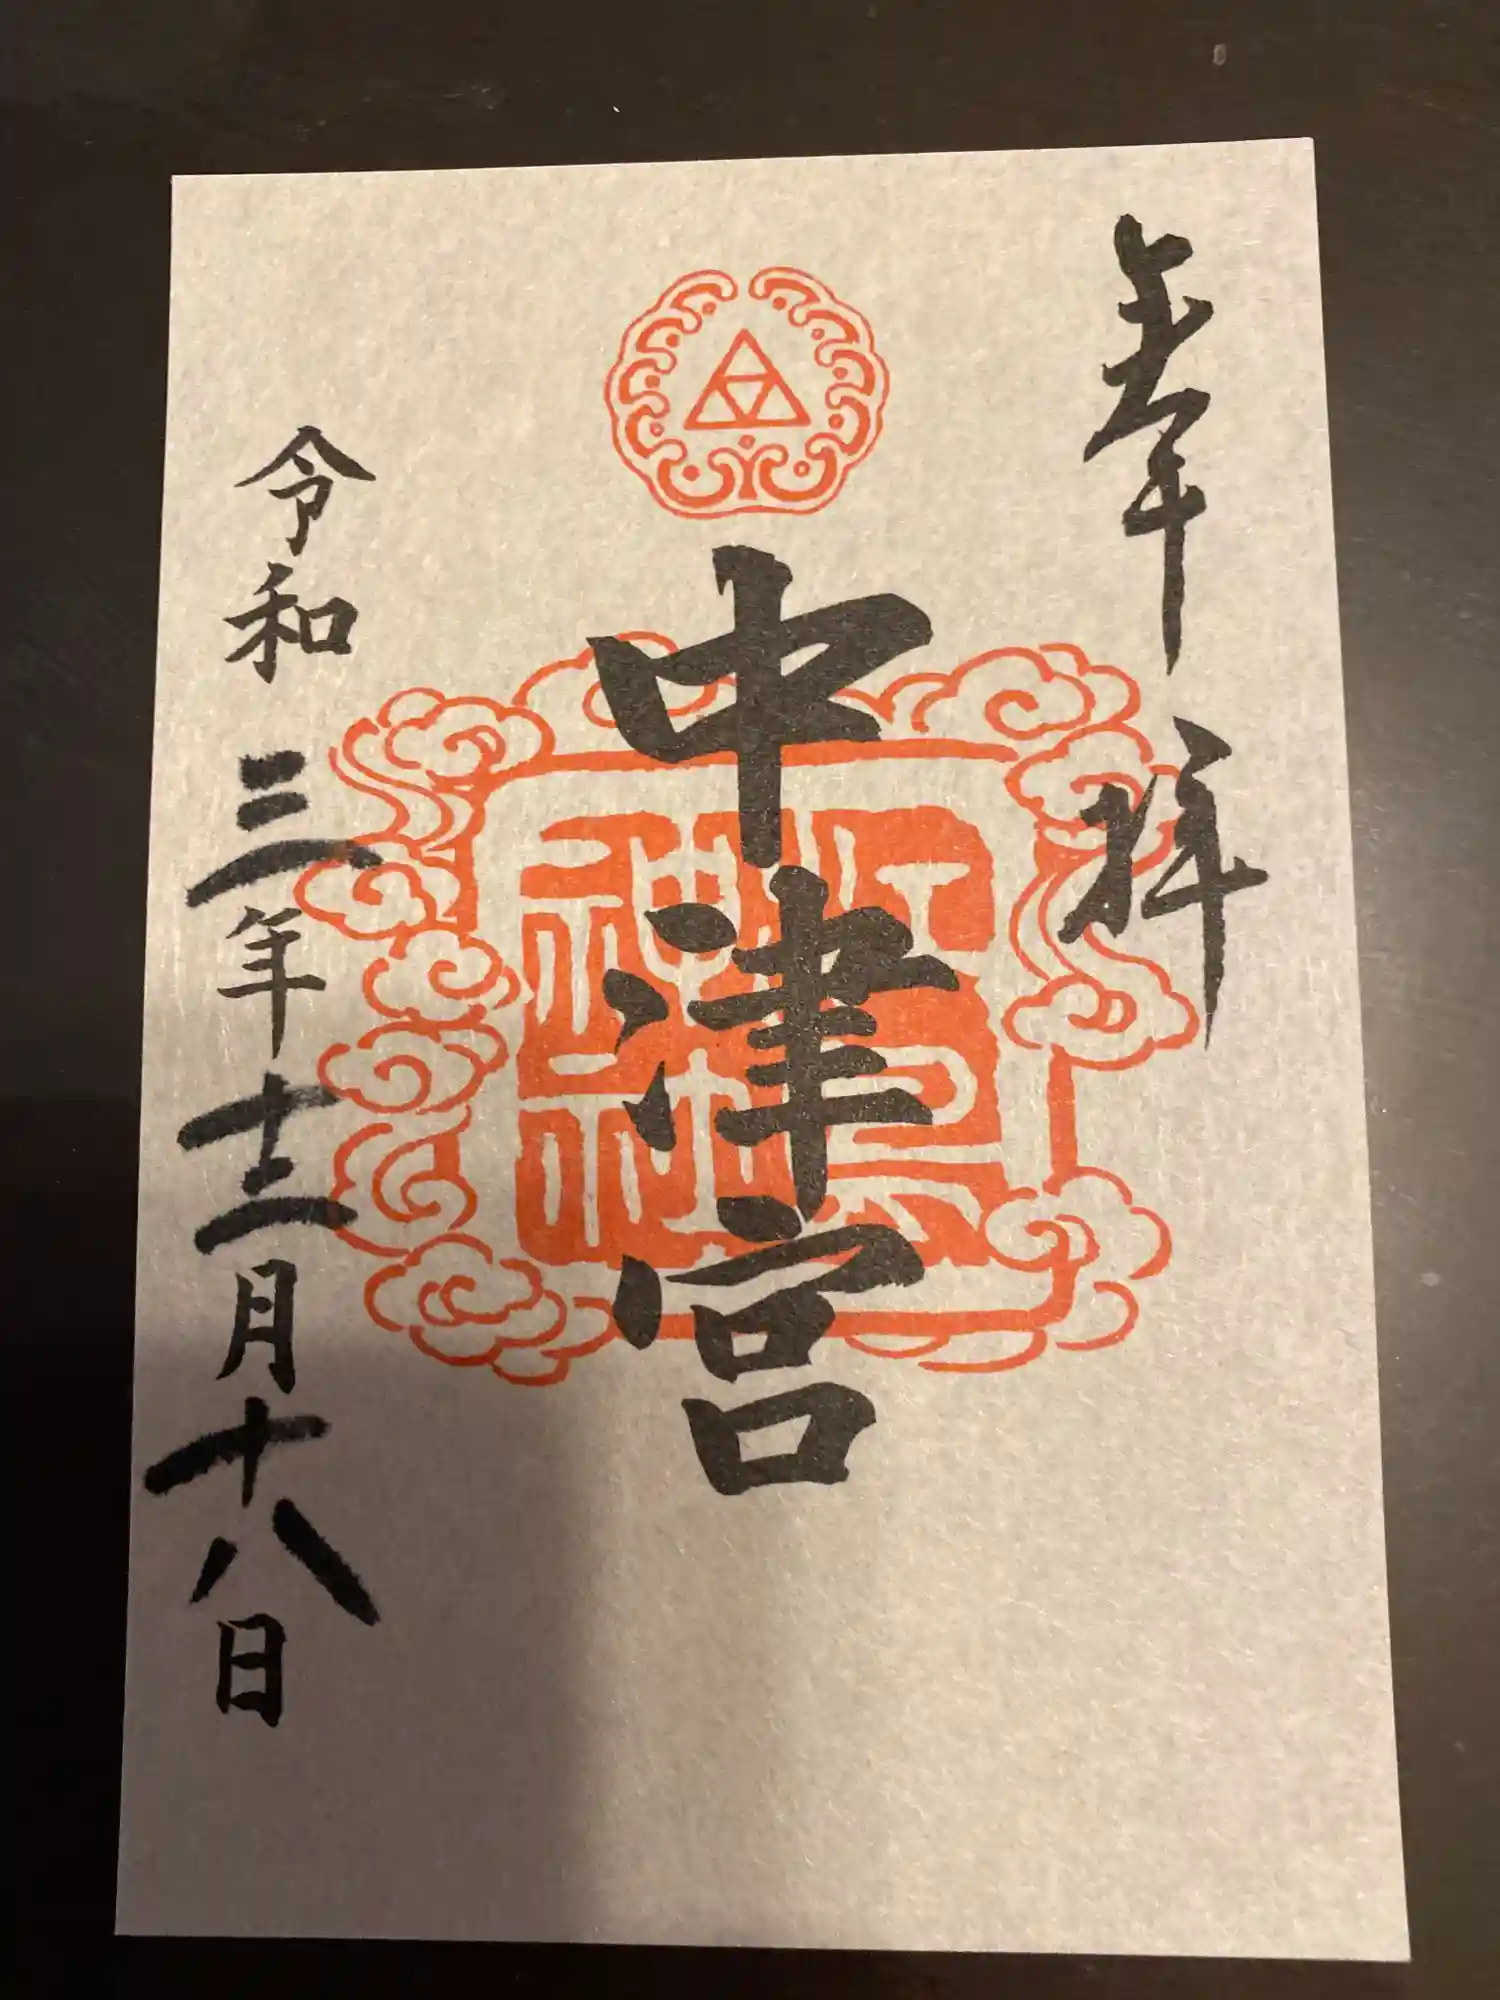 奉拝
中津宮
令和三年十二月十八日